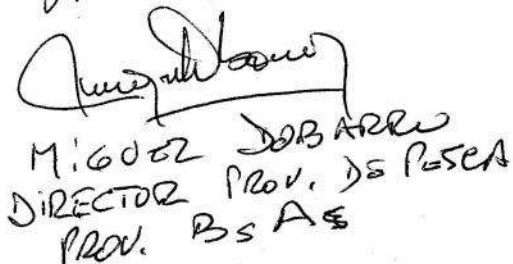 MiGUEZ DOBARRO
DiRECTOR PROV. DE PESCA
PROV. Bs As